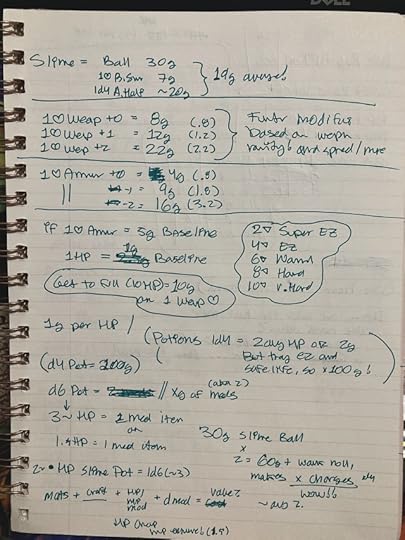 DELL
Slime = Ball 30g
1♡ B.Sm 7g
1d4 A.Half ~20g
} 19g average!
1♡ Weap +0 = 8g (.8)
1♡ Weap +1 = 12g (1.2)
1♡ Wep +2 = 22g (2.2)
} Furtr modifiers
Based on wepn
rarity! and spred/more
1♡ Armur +0 = 4g (.8)
|| -1 = 9g (1.8)
-2 = 16g (3.2)
if 1♡ Amur = 5g Baseline
1HP = 1g Baseline
Get to Fill (10HP) = 10g
on 1 Weap ♡
2♡ Super EZ
4♡ EZ
6♡ Warm
8♡ Hard
10♡ V.Hard
1g per HP /
(Potions 1d4 = 2avg HP or 2g
But they EZ and
safe life, so x100g!)
(d4 Pot = 200g)
d6 Pot = // Xg of mats
(abov 2)
3~ HP = 2 med item
or
1.5HP = 1 med item
30g Slime Ball
x
2 = 60g + wave roll,
makes x charges
wow!!
~avg 2.
2~ • HP Slime Pot = 1d6 (~3)
mats + craft + HP/
mp
mod + d mod = value?
HP Cheap
mp expensive! (1.5)